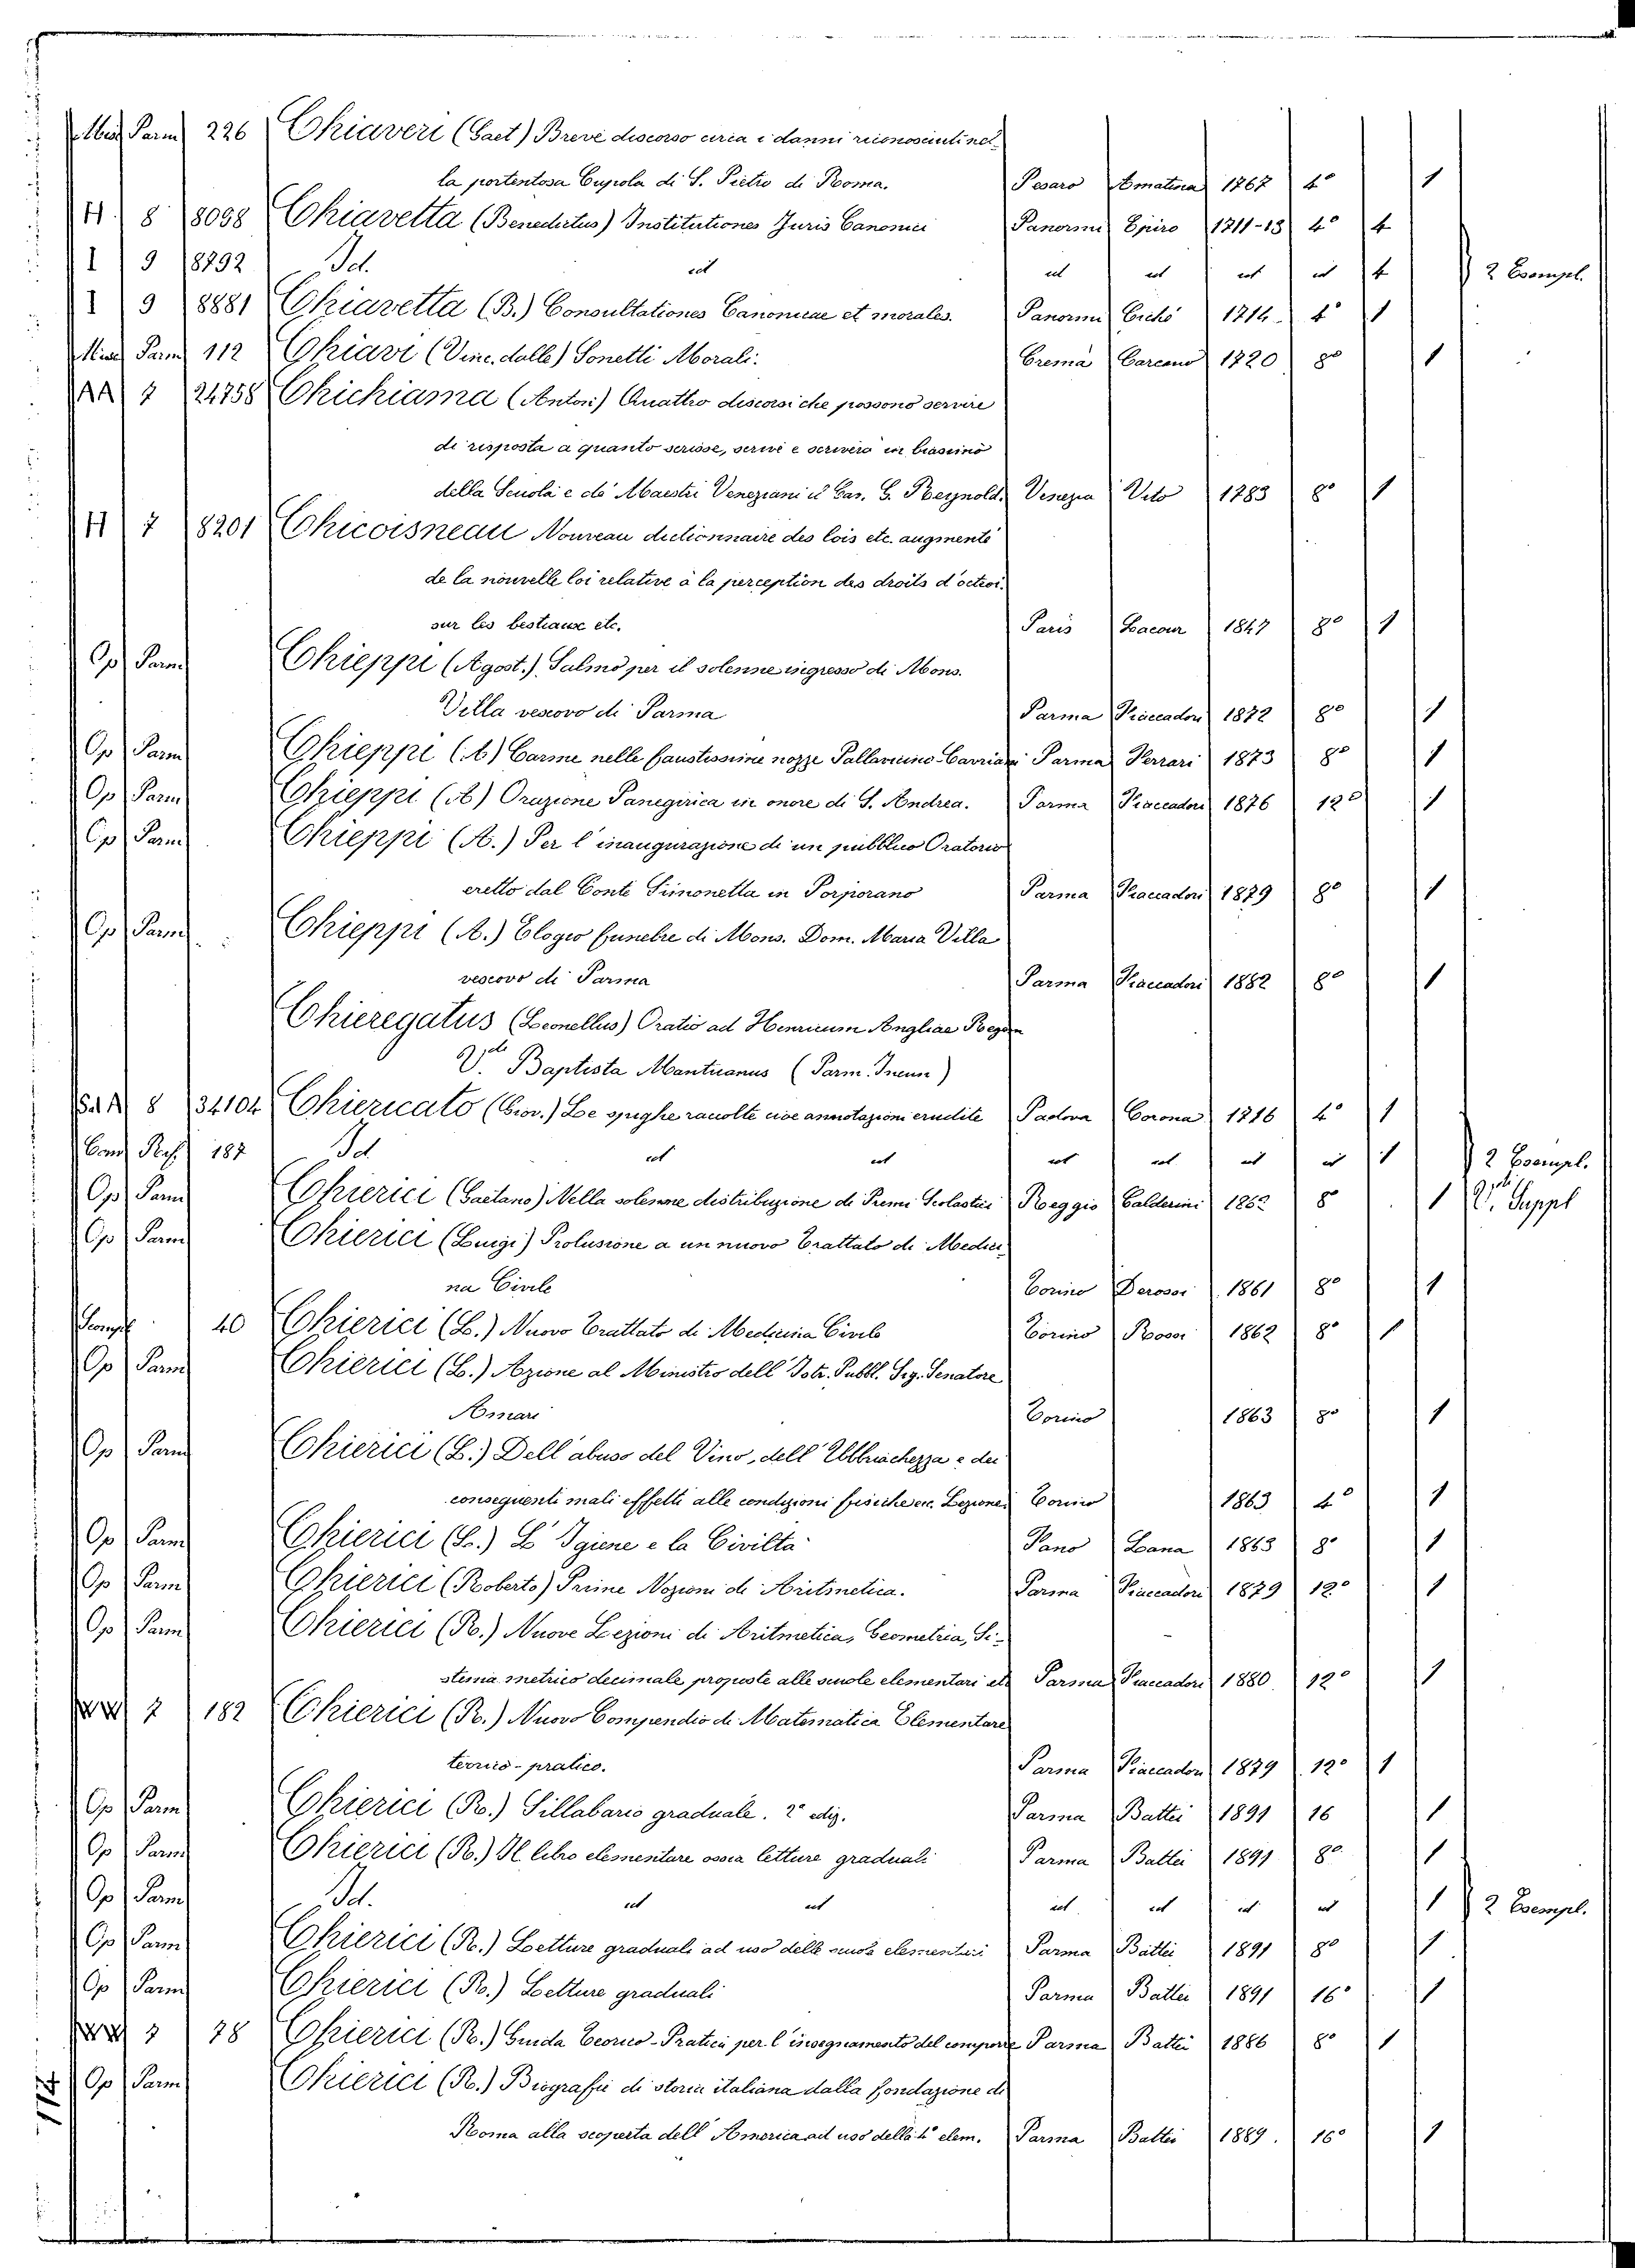 Misc Parm 226 Chiaveri (Gaet) Breve discorso circa i danni riconosciuti nel-
la portentosa Cupola di S. Pietro di Roma. Pesaro Amatina 1767 4° 1
H 8 8098 Chiavetta (Benedictus) Institutiones Juris Canonici Panormi Epiro 1711-13 4° 4
I 9 8792 Id. id id id id id 4 2 Esempl.
I 9 8881 Chiavetta (B.) Consultationes Canonicae et morales. Panormi Cichè 1714 4° 1
Misc Parm 112 Chiavi (Vinc. dalle) Sonetti Morali. Crema Carcano 1720 8° 1
AA 7 24758 Chichiama (Anton.) Quattro discorsi che possono servire
di risposta a quanto scrisse, scrive e scriverà in biasimo
della Scuola e de' Maestri Veneziani il Cav. G. Reynolds Venezia Vito 1783 8° 1
H 7 8201 Chicoisneau Nouveau dictionnaire des lois etc. augmenté
de la nouvelle loi relative à la perception des droits d'octroi
sur les bestiaux etc. Paris Lacour 1847 8° 1
Op Parm Chieppi (Agost.) Salmo per il solenne ingresso di Mons.
Villa vescovo di Parma Parma Fiaccadori 1872 8° 1
Op Parm Chieppi (A.) Carme nelle faustissime nozze Pallavicino-Carriani Parma Ferrari 1873 8° 1
Op Parm Chieppi (A.) Orazione Panegirica in onore di S. Andrea. Parma Fiaccadori 1876 12° 1
Op Parm Chieppi (A.) Per l'inaugurazione di un pubblico Oratorio
eretto dal Conte Simonetta in Porporano Parma Fiaccadori 1879 8° 1
Op Parm Chieppi (A.) Elogio funebre di Mons. Dom. Maria Villa
vescovo di Parma Parma Fiaccadori 1882 8° 1
Chieregatus (Leonellus) Oratio ad Henricum Angliae Regem
V.de Baptista Mantuanus (Parm. Incun)
Sal A 8 34104 Chiericato (Giov.) Le spighe raccolte cioè annotazioni erudite Padova Corona 1716 4° 1
Cand Ref. 187 Id. id id id id id id 1 2 Esempl.
Op Parm Chierici (Gaetano) Nella solenne distribuzione de Premi Scolastici Reggio Calderini 1862 8° 1 V.de Suppl
Op Parm Chierici (Luigi) Prolusione a un nuovo Trattato di Medici-
na Civile Torino Derossi 1861 8° 1
40 Chierici (L.) Nuovo Trattato di Medicina Civile Torino Rossi 1862 8° 1
Op Parm Chierici (L.) Azione al Ministro dell'Istr. Pubbl. Sig. Senatore
Amari Torino 1863 8° 1
Op Parm Chierici (L.) Dell'abuso del Vino, dell'Ubbriachezza e dei
conseguenti mali effetti alle condizioni fisiche ecc. Lezione Torino 1863 4° 1
Op Parm Chierici (L.) L'Igiene e la Civiltà Fano Lana 1863 8° 1
Op Parm Chierici (Roberto) Prime Nozioni di Aritmetica. Parma Fiaccadori 1879 12° 1
Op Parm Chierici (R.) Nuove Lezioni di Aritmetica, Geometria, Si-
stema metrico decimale proposte alle scuole elementari etc Parma Fiaccadori 1880 12° 1
7 182 Chierici (R.) Nuovo Compendio di Matematica Elementare
teorico-pratico. Parma Fiaccadori 1879 12° 1
Op Parm Chierici (R.) Sillabario graduale. 2ª ediz. Parma Battei 1891 16 1
Op Parm Chierici (R.) Il libro elementare ossia letture graduali Parma Battei 1891 8° 1
Op Parm Id. id id id id id id 1 2 Esempl.
Op Parm Chierici (R.) Letture graduali ad uso delle scuole elementari Parma Battei 1891 8° 1
Op Parm Chierici (R.) Letture graduali Parma Battei 1891 16° 1
7 78 Chierici (R.) Guida Teorico-Pratica per l'insegnamento del comporre Parma Battei 1886 8° 1
Op Parm Chierici (R.) Biografie di storia italiana dalla fondazione di
Roma alla scoperta dell'America ad uso della 4ª elem. Parma Battei 1889. 16° 1
174